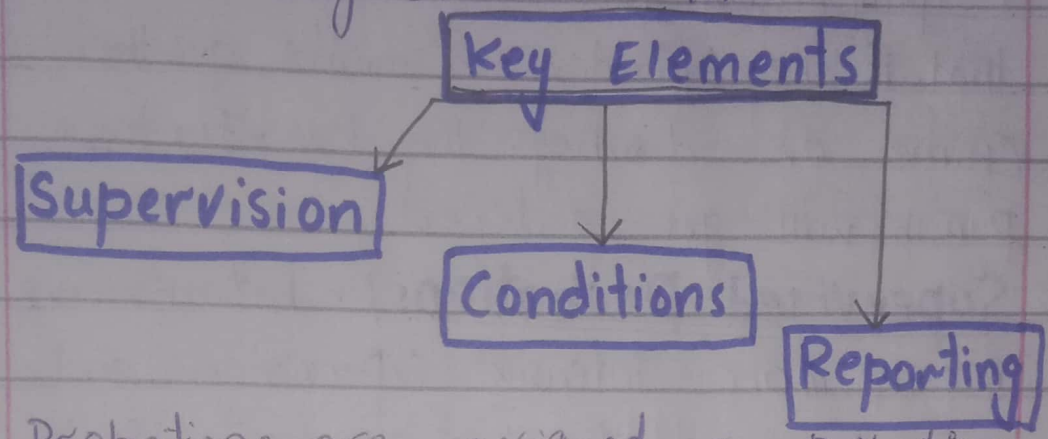 Key Elements
Supervision
Conditions
Reporting